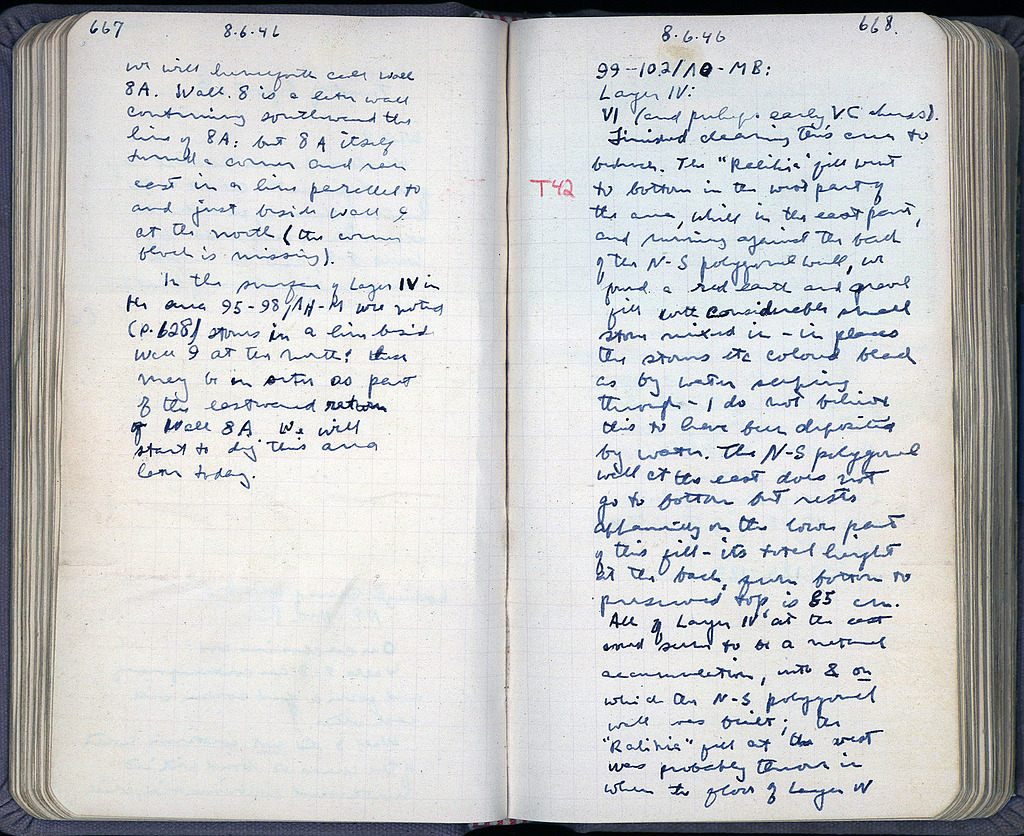 667
8.6.46
we will henceforth call Wall
8A. Wall 8 is a later wall
continuing southward the
line of 8A: but 8A itself
turned a corner and ran
east in a line parallel to
and just beside Wall 9
at the north (the corner
block is missing).
In the surface of Layer IV in
the area 95-98/ΛΗ-Μ we noted
(p. 628) stones in a line beside
Wall 9 at the north: these
may be in situ as part
of the eastward return
of Wall 8A. We will
start to dig this area
later today.
8.6.46
668.
99-102/ΛΘ-ΜΒ:
Layer IV:
VI (and perhaps early VC chars).
Finished clearing this area to
bedrock. The "Ralikia" fill went
T42
to bottom in the west part of
the area, while in the east part,
and running against the back
of the N-S polygonal wall, we
found a red earth and gravel
fill with considerable small
stone mixed in - in places
the stones etc colored black
as by water seeping
through - I do not believe
this to have been deposited
by water. The N-S polygonal
wall at the east does not
go to bottom but rests
apparently on the lower part
of this fill - its total height
at the back, from bottom to
preserved top, is 85 cm.
All of Layer IV at the east
would seem to be a natural
accumulation, into & on
which the N-S polygonal
wall was built; the
"Ralikia" fill at the west
was probably thrown in
when the floor of Layer IV